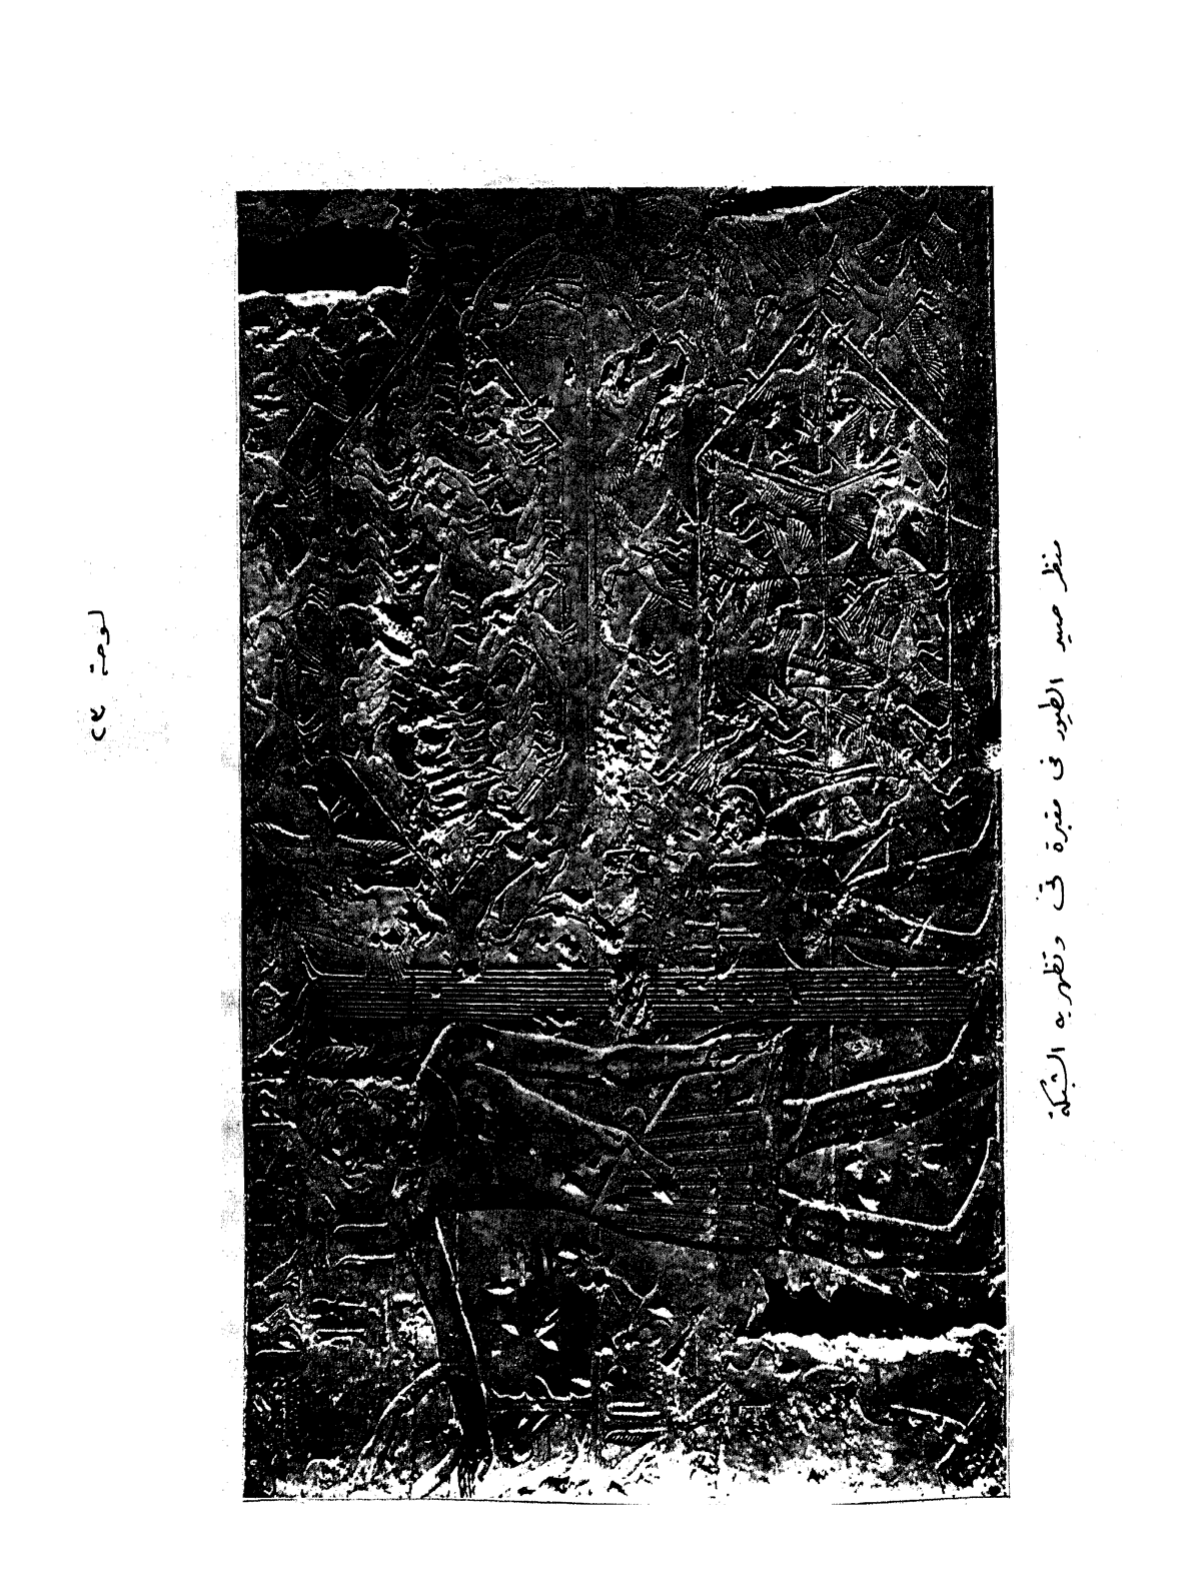 لوحة ٢٣
منظر صيد الطيور فى مقبرة تى وتظهر به الشبكة